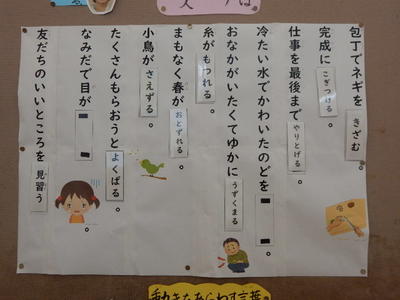 包丁でネギを きざむ 。
完成に こぎつける 。
仕事を最後まで やりとげる 。
冷たい水でかわいたのどを 。
おなかがいたくてゆかに うずくまる
糸が もつれる 。
まもなく春が おとずれる 。
小鳥が さえずる 。
たくさんもらおうと よくばる 。
なみだで目が 。
友だちのいいところを 見習う
動きをあらわす言葉